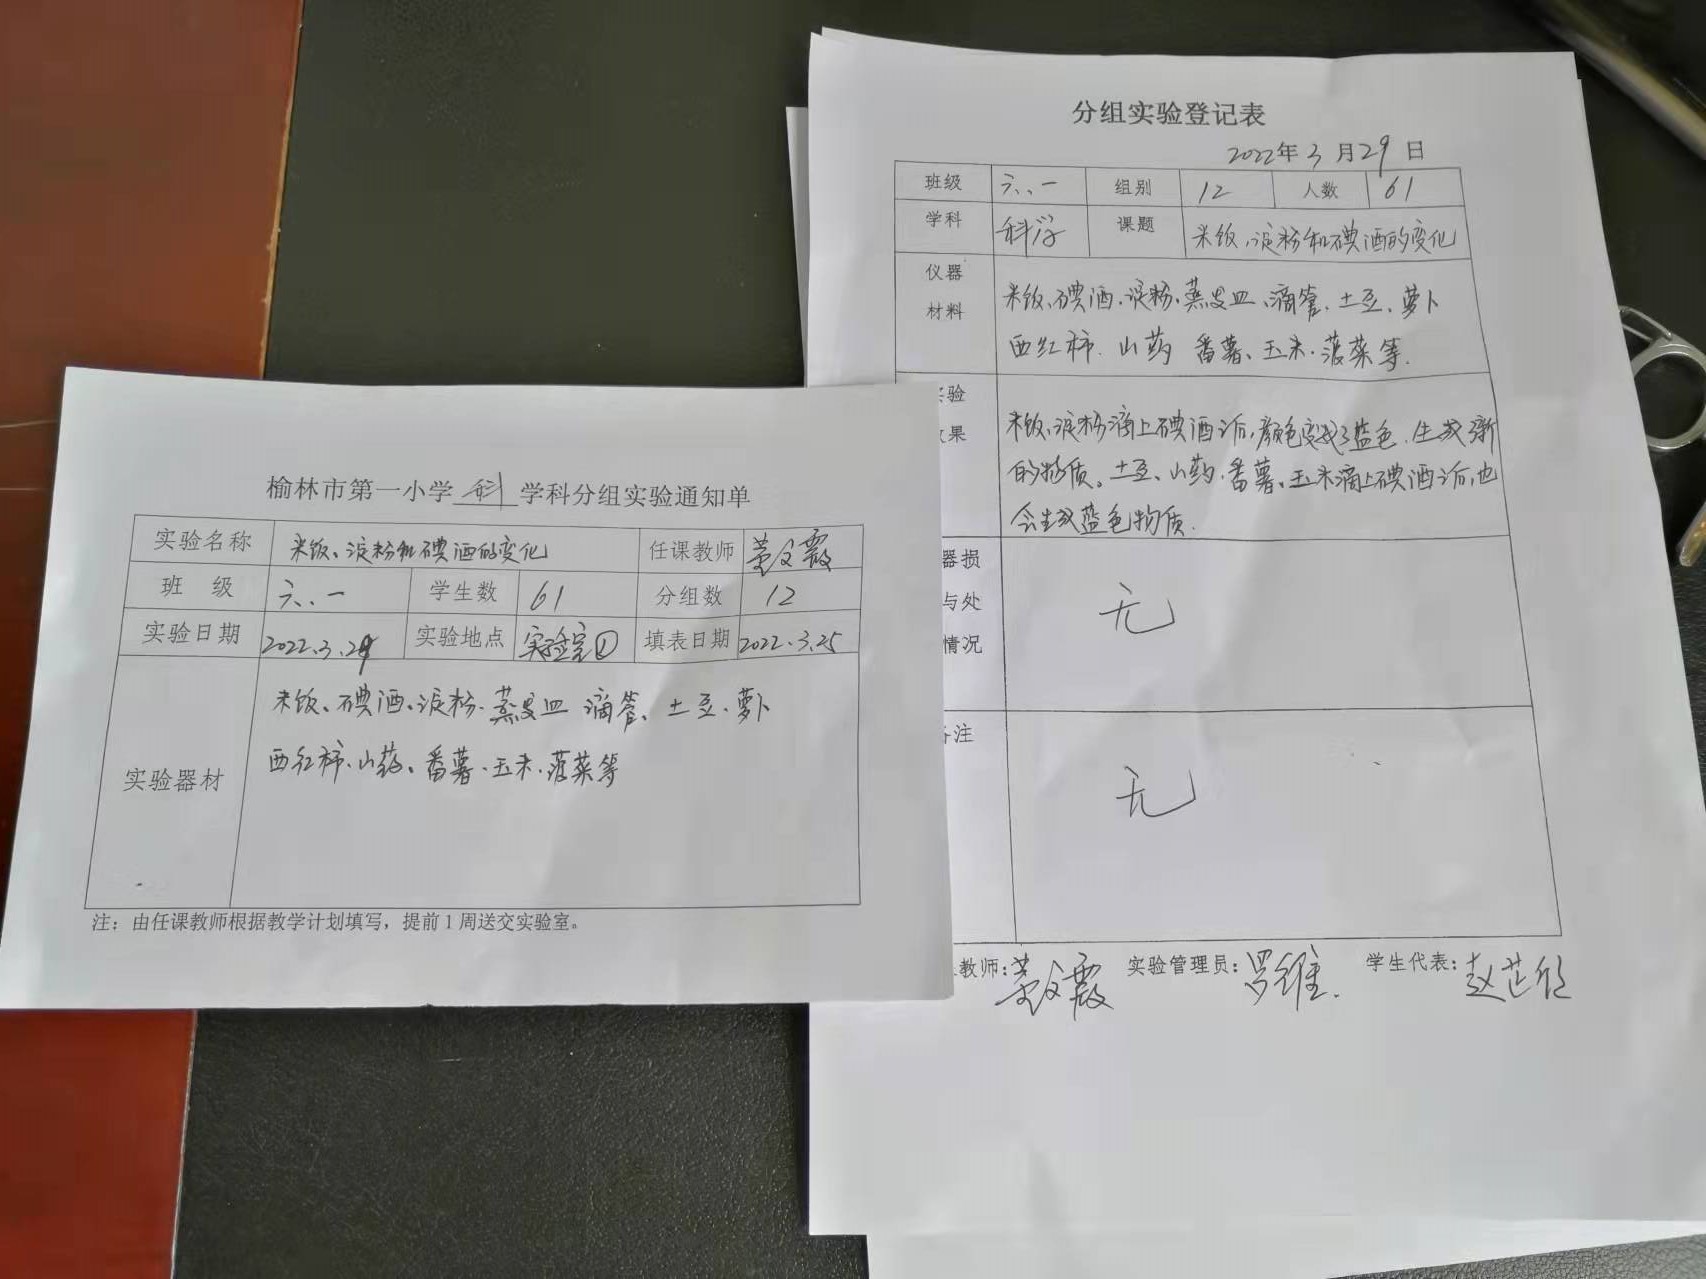 榆林市第一小学 科 学科分组实验通知单
实验名称 米饭、淀粉和碘酒的变化 任课教师
班 级 六、一 学生数 61 分组数 12
实验日期 2022.3.29 实验地点 实验室① 填表日期 2022.3.25
米饭、碘酒、淀粉、蒸发皿 滴管、土豆、萝卜
实验器材 西红柿、山药、番薯、玉米、菠菜等
注：由任课教师根据教学计划填写，提前1周送交实验室。
分组实验登记表
2022年3月29日
班级 六、一 组别 12 人数 61
学科 科学 课题 米饭、淀粉和碘酒的变化
仪器 米饭、碘酒、淀粉、蒸发皿、滴管、土豆、萝卜
材料 西红柿、山药 番薯、玉米、菠菜等.
验 米饭、淀粉滴上碘酒后，颜色变成了蓝色，生成新
果 的物质。土豆、山药、番薯、玉米滴上碘酒后，也
会生成蓝色物质.
器损
与处 无
情况
注
无
教师: 实验管理员: 罗维. 学生代表: 赵芷欣